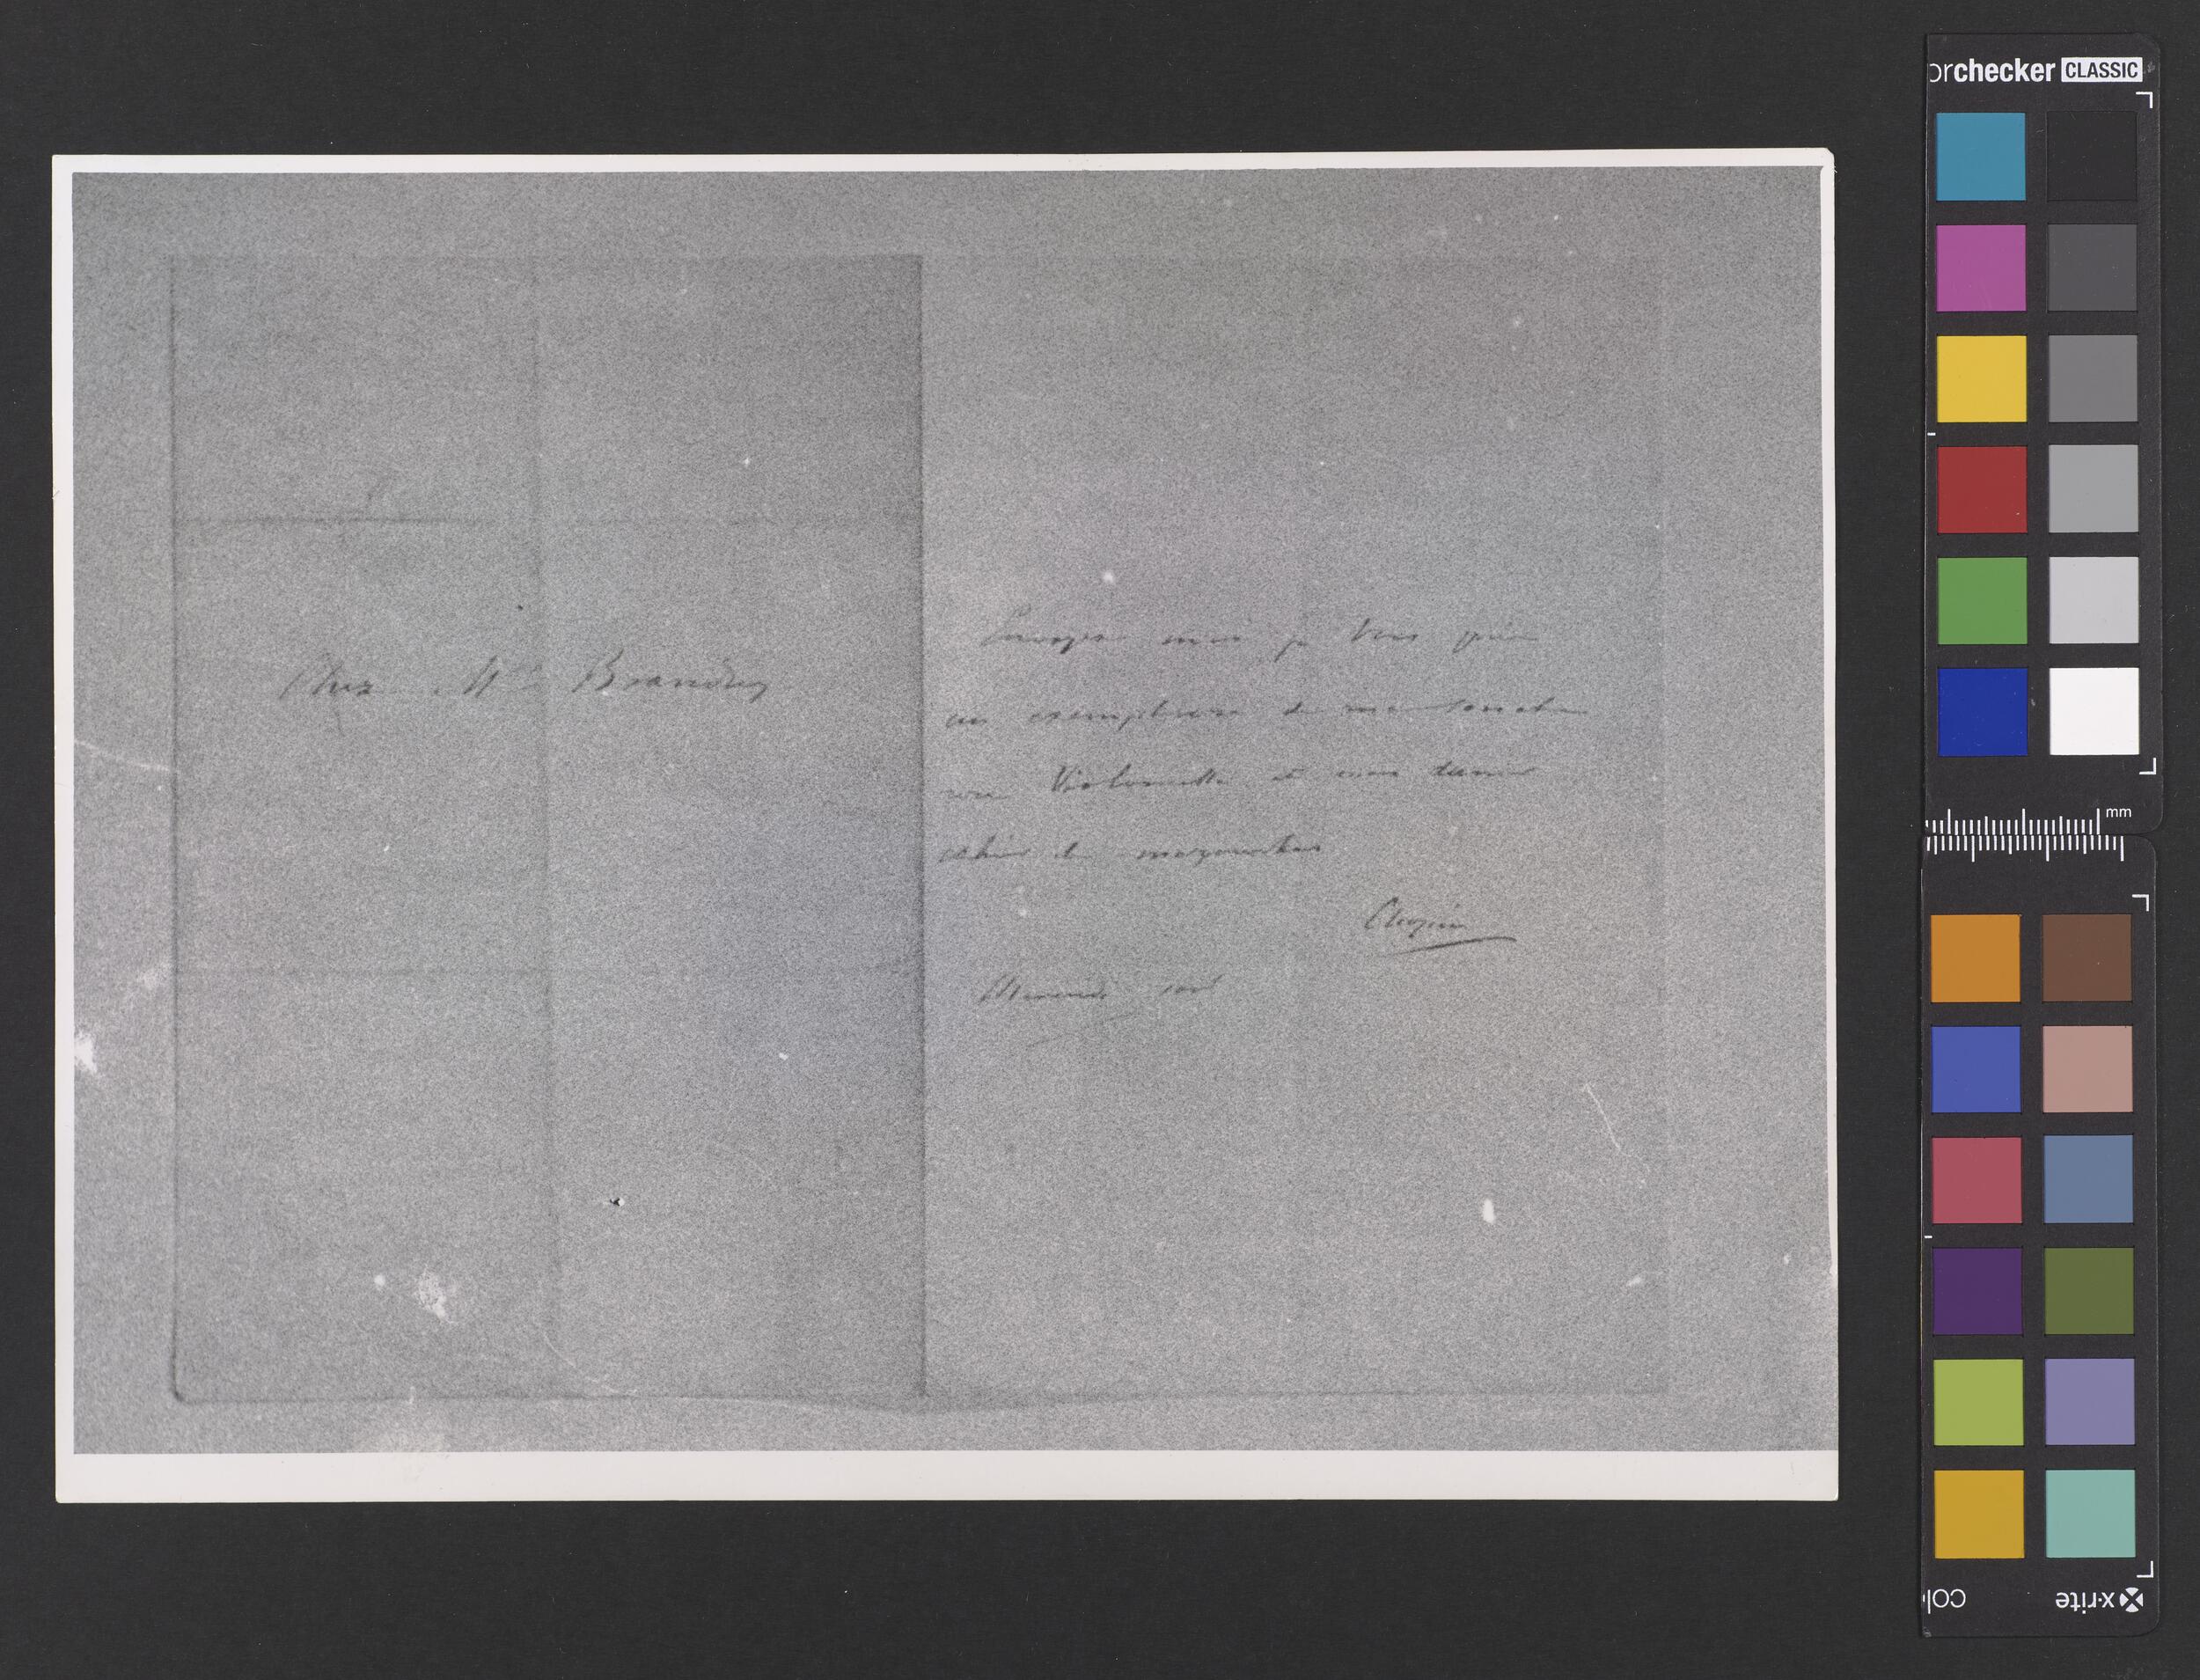 Chez Mr Brandus
Envoyez moi je Vous prie
un exemplaire de ma Sonate
Violoncelle et mon dernier
cahier de mazourkas
Chopin
Mercredi soir
orchecker CLASSIC
mm
x-rite
col